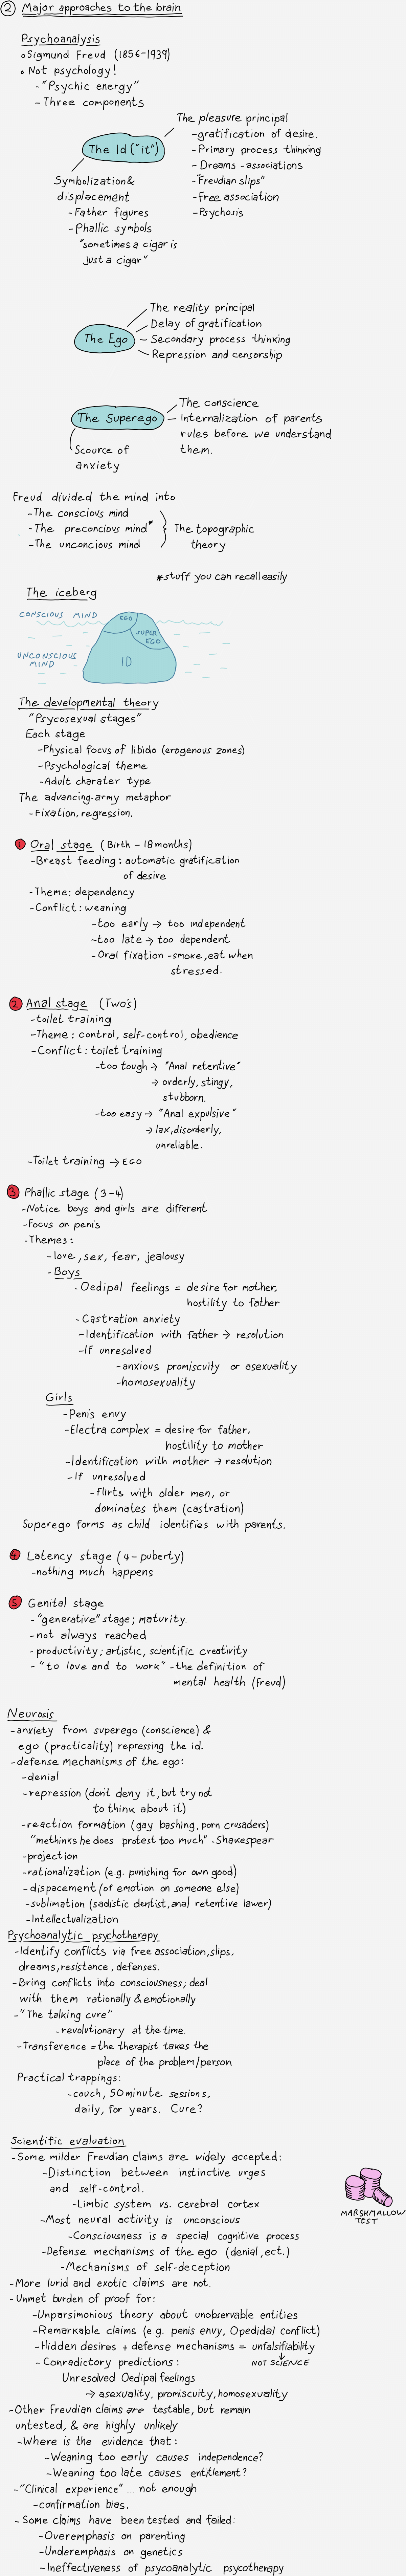 ② Major approaches to the brain
Psychoanalysis
◦ Sigmund Freud (1856-1939)
◦ Not psychology!
- "Psychic energy"
- Three components
The Id ("it")
The pleasure principal
- gratification of desire.
- Primary process thinking
- Dreams - associations
- "Freudian slips"
- Free association
- Psychosis
Symbolization &
displacement
- Father figures
- Phallic symbols
"sometimes a cigar is
just a cigar"
The Ego
The reality principal
Delay of gratification
- Secondary process thinking
Repression and censorship
The Superego
The conscience
Internalization of parents
rules before we understand
them.
Scource of
anxiety
Freud divided the mind into
- The conscious mind
- The preconcious mind*
- The unconcious mind
The topographic
theory
*stuff you can recall easily
The iceberg
CONSCIOUS MIND
EGO
SUPER
EGO
UNCONSCIOUS
MIND
ID
The developmental theory
"Psycosexual stages"
Each stage
- Physical focus of libido (erogenous zones)
- Psychological theme
- Adult charater type
The advancing-army metaphor
- Fixation, regression.
1 Oral stage (Birth - 18 months)
- Breast feeding: automatic gratification
of desire
- Theme: dependency
- Conflict: weaning
- too early → too independent
- too late → too dependent
- Oral fixation - smoke, eat when
stressed.
2 Anal stage (Two's)
- toilet training
- Theme: control, self-control, obedience
- Conflict: toilet training
- too tough → "Anal retentive"
→ orderly, stingy,
stubborn.
- too easy → "Anal expulsive"
→ lax, disorderly,
unreliable.
- Toilet training → EGO
3 Phallic stage (3-4)
- Notice boys and girls are different
- Focus on penis
- Themes:
- love, sex, fear, jealousy
- Boys
- Oedipal feelings = desire for mother,
hostility to father
- Castration anxiety
- Identification with father → resolution
- If unresolved
- anxious promiscuity or asexuality
- homosexuality
Girls
- Penis envy
- Electra complex = desire for father,
hostility to mother
- Identification with mother → resolution
- If unresolved
- flirts with older men, or
dominates them (castration)
Superego forms as child identifies with parents.
4 Latency stage (4-puberty)
- nothing much happens
5 Genital stage
- "generative" stage; maturity.
- not always reached
- productivity; artistic, scientific creativity
- "to love and to work" - the definition of
mental health (freud)
Neurosis
- anxiety from superego (conscience) &
ego (practicality) repressing the id.
- defense mechanisms of the ego:
- denial
- repression (don't deny it, but try not
to think about it)
- reaction formation (gay bashing, porn crusaders)
"methinks he does protest too much" - Shakespear
- projection
- rationalization (e.g. punishing for own good)
- dispacement (of emotion on someone else)
- sublimation (sadistic dentist, anal retentive lawer)
- Intellectualization
Psychoanalytic psychotherapy
- Identify conflicts via free association, slips,
dreams, resistance, defenses.
- Bring conflicts into consciousness; deal
with them rationally & emotionally
- "The talking cure"
- revolutionary at the time.
- Transference = the therapist takes the
place of the problem/person
Practical trappings:
- couch, 50 minute sessions,
daily, for years. Cure?
Scientific evaluation
- Some milder Freudian claims are widely accepted:
- Distinction between instinctive urges
and self-control.
- Limbic system vs. cerebral cortex
MARSHMALLOW
TEST
- Most neural activity is unconscious
- Consciousness is a special cognitive process
- Defense mechanisms of the ego (denial, ect.)
- Mechanisms of self-deception
- More lurid and exotic claims are not.
- Unmet burden of proof for:
- Unparsimonious theory about unobservable entities
- Remarkable claims (e.g. penis envy, Opedidal conflict)
- Hidden desires + defense mechanisms = unfalsifiability
↓
NOT SCIENCE
- Contradictory predictions:
Unresolved Oedipal feelings
→ asexuality, promiscuity, homosexuality
- Other Freudian claims are testable, but remain
untested, & are highly unlikely
- Where is the evidence that:
- Weaning too early causes independence?
- Weaning too late causes entitlement?
- "Clinical experience" ... not enough
- confirmation bias.
- Some claims have been tested and failed:
- Overemphasis on parenting
- Underemphasis on genetics
- Ineffectiveness of psycoanalytic psycotherapy